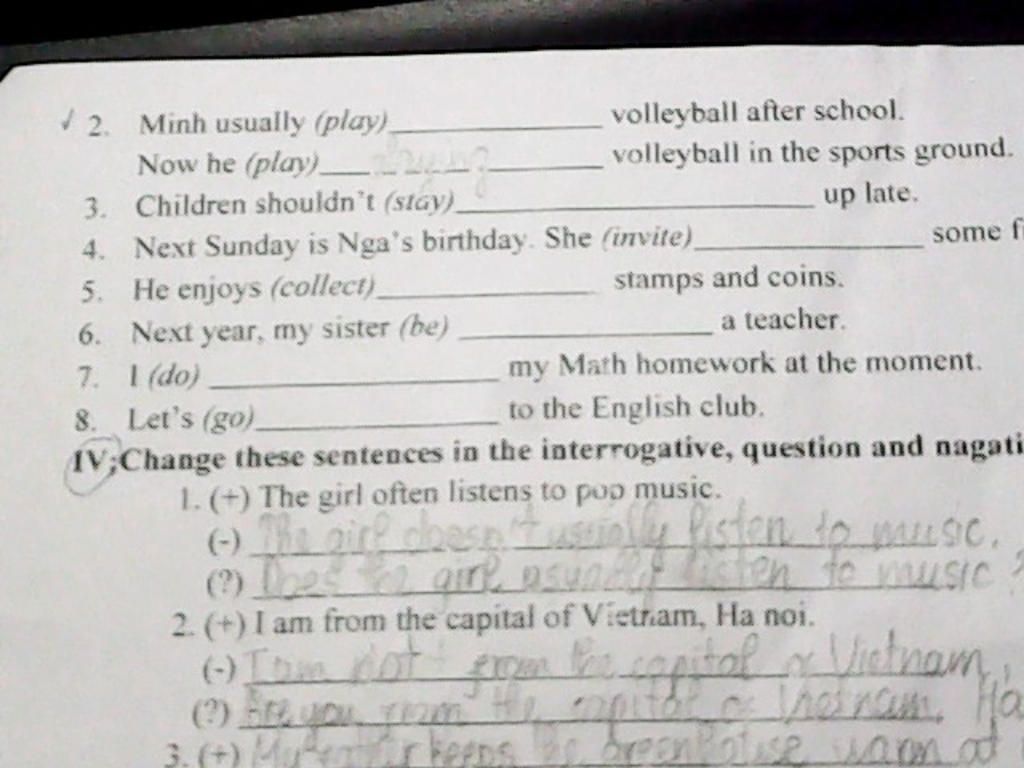 ✓ 2. Minh usually (play)____________ volleyball after school.
Now he (play)___playing___ volleyball in the sports ground.
3. Children shouldn't (stay)____________ up late.
4. Next Sunday is Nga's birthday. She (invite)____________ some
5. He enjoys (collect)____________ stamps and coins.
6. Next year, my sister (be) ____________ a teacher.
7. I (do) ____________ my Math homework at the moment.
8. Let's (go)____________ to the English club.
IV; Change these sentences in the interrogative, question and nagati
1. (+) The girl often listens to pop music.
(-) The girl doesn't usually listen to music.
(?) Does the girl usually listen to music ?
2. (+) I am from the capital of Vietnam, Ha noi.
(-) I am not from the capital of Vietnam,
(?) Are you from the capital of Vietnam, Ha
3. (+) My father keeps the greenhouse warm at